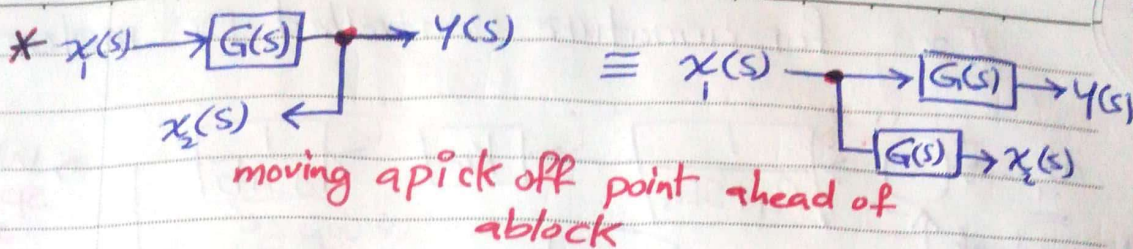 * x₁(s) → G(s) → Y(s)
x₂(s) ←
≡ x₁(s) → G(s) → Y(s)
G(s) → x₂(s)
moving apick off point ahead of
ablock